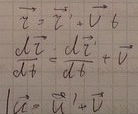 r⃗ = r⃗' + v⃗ t
dr⃗/dt = dr⃗'/dt + v⃗
u⃗ = u⃗' + v⃗